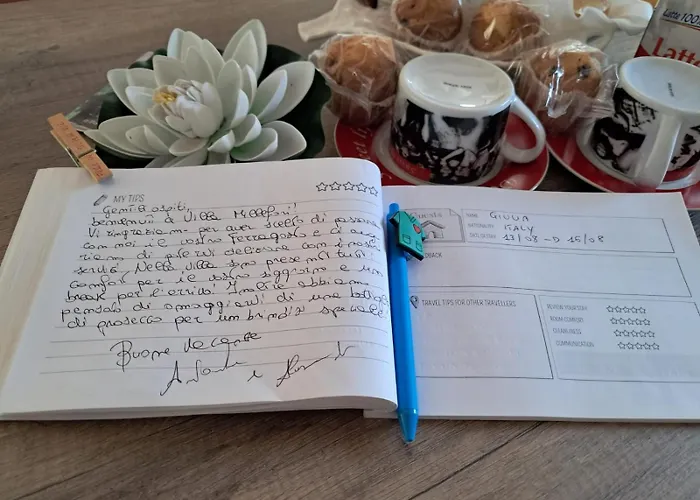 MY TIPS
Gentili ospiti,
benvenuti a Villa Millefiori!
Vi ringraziamo per aver scelto di passare
con noi il vostro Ferragosto e di
di avervi deliziare con i nostri
servizi. Nella villa sono presenti tutti i
comfort per il vostro soggiorno e un
break per l'arrivo! Inoltre abbiamo
pensato di omaggiarvi di una bottiglia
di prosecco per un brindisi speciale
Buone vacanze
Guest
NAME GIULIA
NATIONALITY ITALY
DATE OF STAY 13/08 -D 15/08
BACK
TRAVEL TIPS FOR OTHER TRAVELLERS
REVIEW YOUR STAY
ROOM COMFORT
CLEANLINESS
COMMUNICATION
Latte 100%
Latte